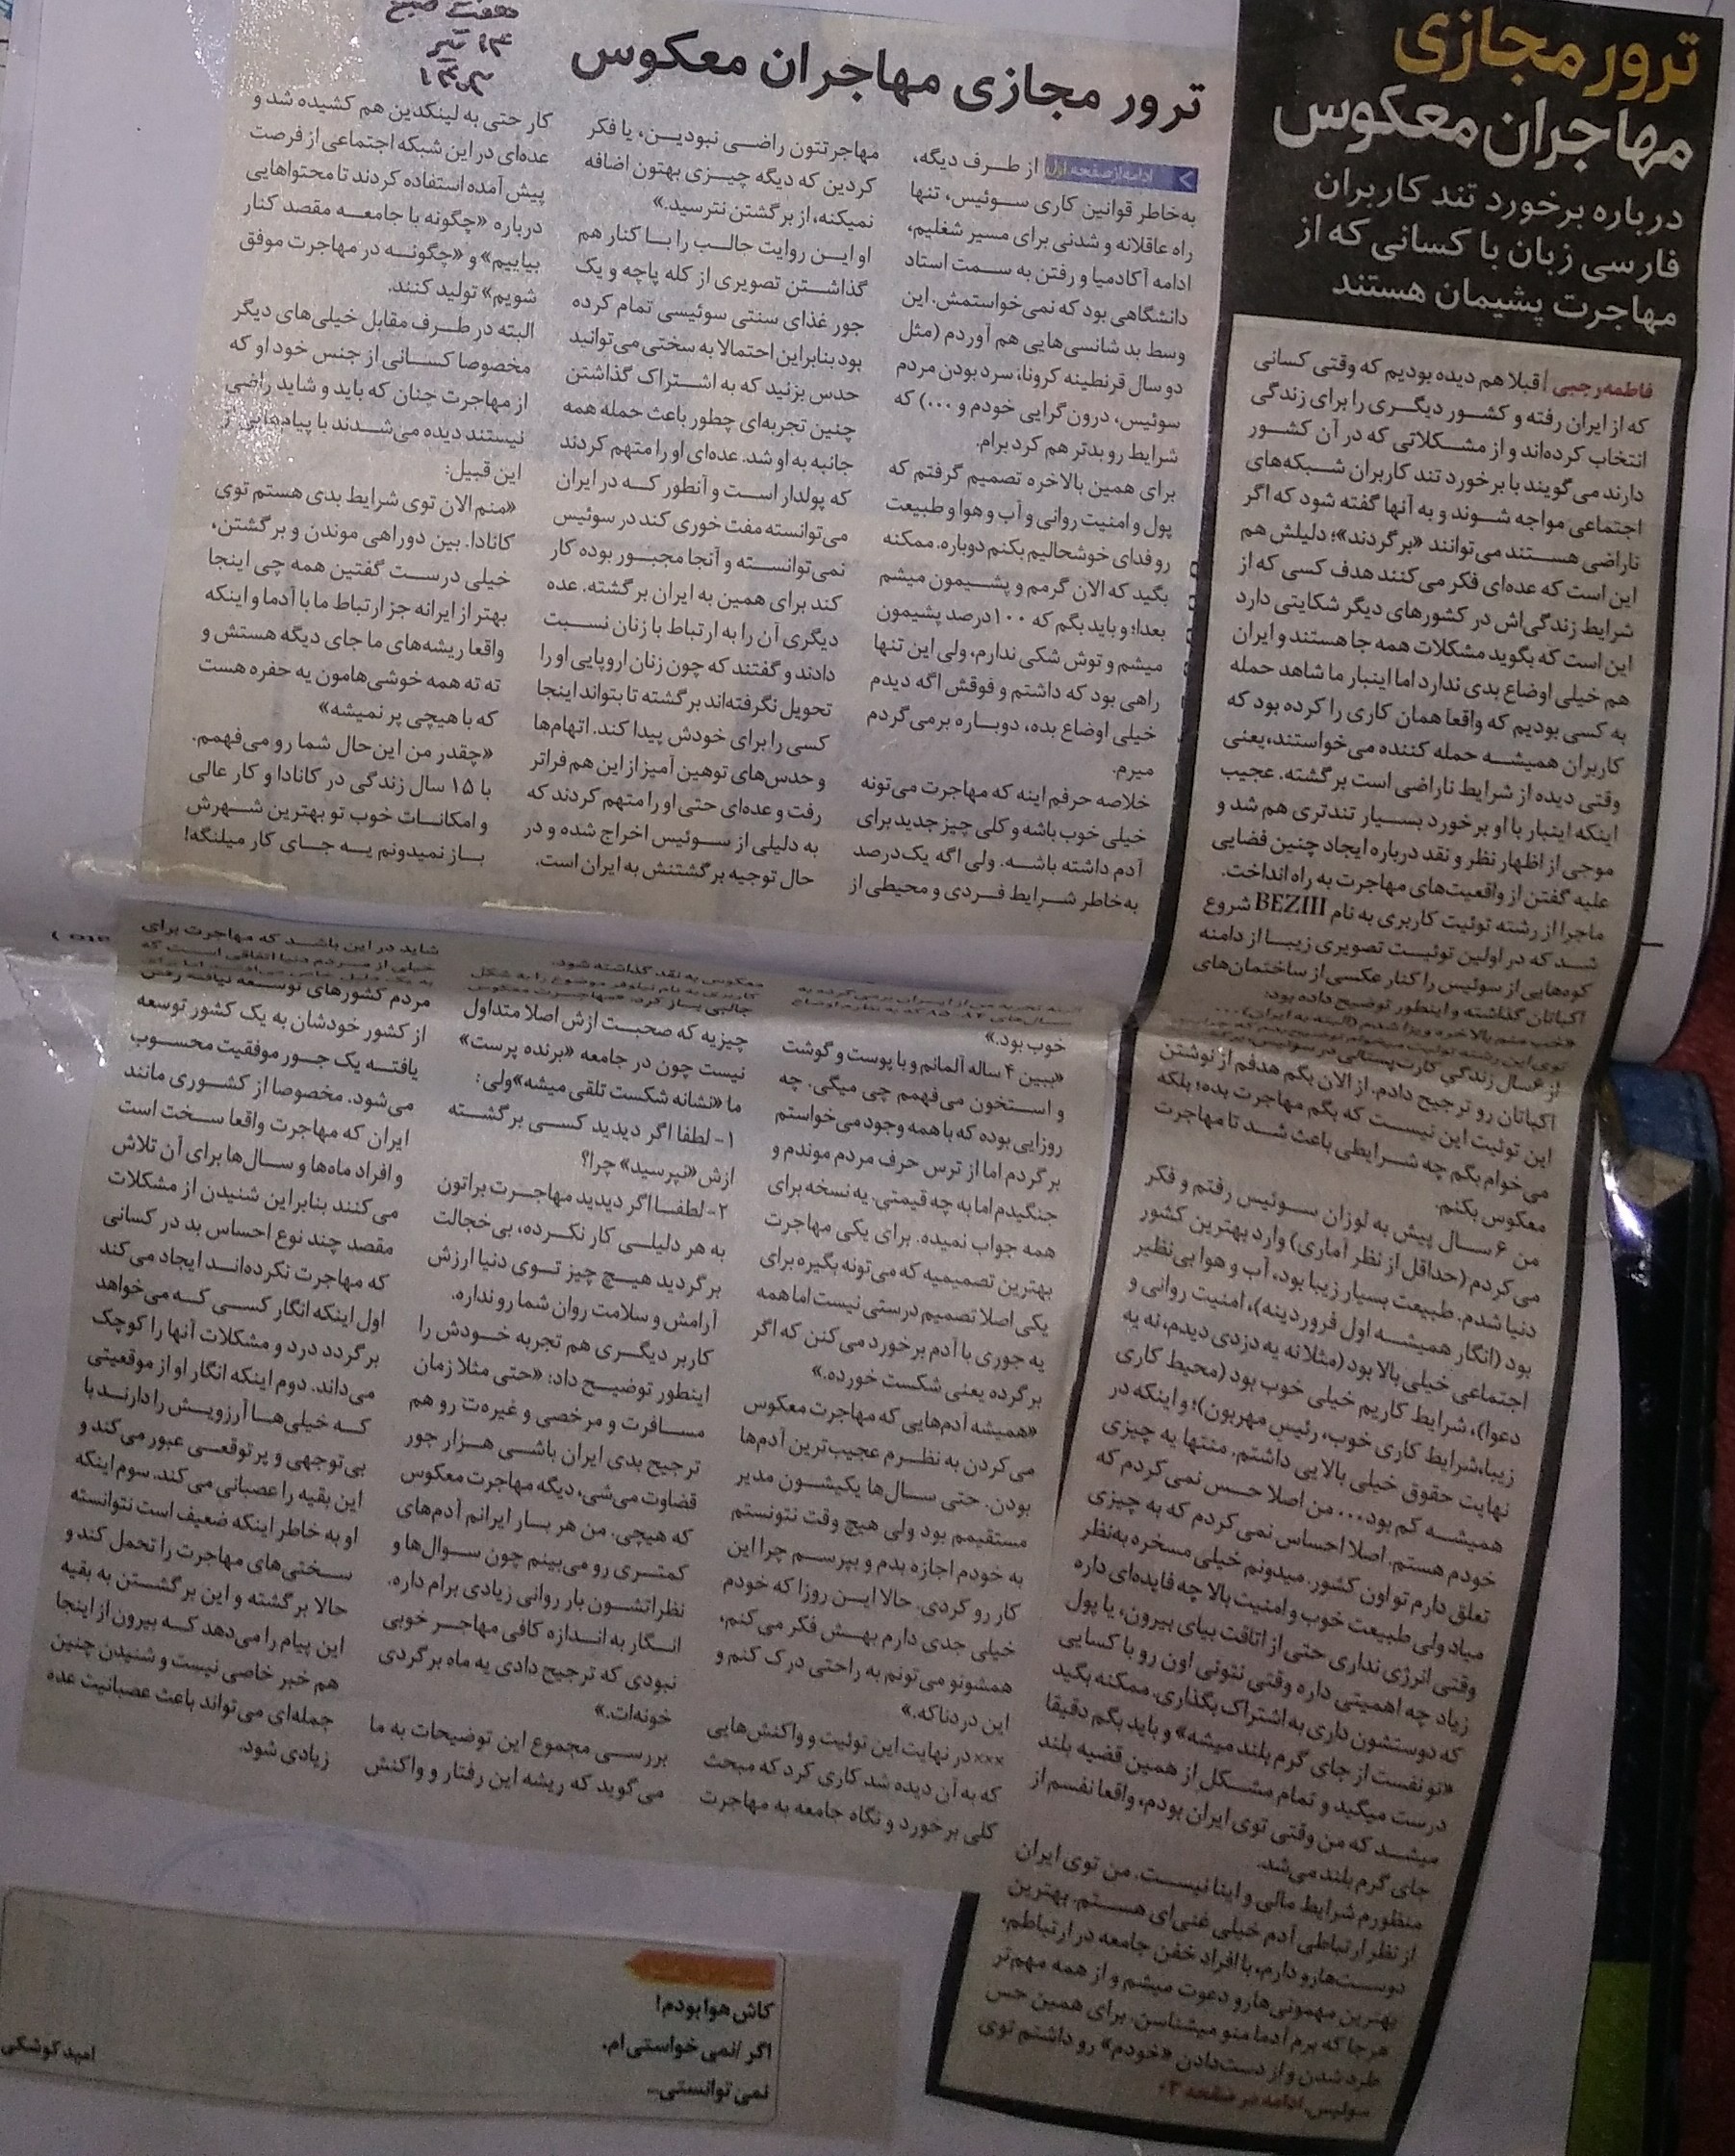 ترور مجازی
مهاجران معکوس
درباره برخورد تند کاربران
فارسی زبان با کسانی که از
مهاجرت پشیمان هستند
فاطمه رجبی | قبلا هم دیده بودیم که وقتی کسانی
که از ایران رفته و کشور دیگری را برای زندگی
انتخاب کرده‌اند و از مشکلاتی که در آن کشور
دارند می‌گویند با برخورد تند کاربران شبکه‌های
اجتماعی مواجه شوند و به آنها گفته شود که اگر
ناراضی هستند می‌توانند «برگردند»؛ دلیلش هم
این است که عده‌ای فکر می‌کنند هدف کسی که از
شرایط زندگی‌اش در کشورهای دیگر شکایتی دارد
این است که بگوید مشکلات همه جا هستند و ایران
هم خیلی اوضاع بدی ندارد اما اینبار ما شاهد حمله
به کسی بودیم که واقعا همان کاری را کرده بود که
کاربران همیشه حمله کننده می‌خواستند، یعنی
وقتی دیده از شرایط ناراضی است برگشته. عجیب
اینکه اینبار با او برخورد بسیار تندتری هم شد و
موجی از اظهار نظر و نقد درباره ایجاد چنین فضایی
علیه گفتن از واقعیت‌های مهاجرت به راه انداخت.
ماجرا از رشته توئیت کاربری به نام BEZIII شروع
شد که در اولین توئیت تصویری زیبا از دامنه
کوه‌هایی از سوئیس را کنار عکسی از ساختمان‌های
اکباتان گذاشته و اینطور توضیح داده بود:
«خب منم بالاخره ویزا شدم (البته به ایران)...
توی این رشته توئیت میخوام توضیح بدم که چرا
از ۶ سال زندگی کارت‌پستالی در سوئیس،
اکباتان رو ترجیح دادم. از الان بگم هدفم از نوشتن
این توئیت این نیست که بگم مهاجرت بده؛ بلکه
می‌خوام بگم چه شرایطی باعث شد تا مهاجرت
معکوس بکنم.
من ۶ سال پیش به لوزان سوئیس رفتم و فکر
می‌کردم (حداقل از نظر آماری) وارد بهترین کشور
دنیا شدم. طبیعت بسیار زیبا بود، آب و هوا بی‌نظیر
بود (انگار همیشه اول فروردینه)، امنیت روانی و
اجتماعی خیلی بالا بود (مثلا نه یه دزدی دیدم، نه یه
دعوا)، شرایط کاریم خیلی خوب بود (محیط کاری
زیبا، شرایط کاری خوب، رئیس مهربون)؛ و اینکه در
نهایت حقوق خیلی بالایی داشتم. منتها یه چیزی
همیشه کم بود... من اصلا حس نمی‌کردم که
خودم هستم. اصلا احساس نمی‌کردم که به چیزی
تعلق دارم تو اون کشور. میدونم خیلی مسخره به‌نظر
میاد ولی طبیعت خوب و امنیت بالا چه فایده‌ای داره
وقتی انرژی نداری حتی از اتاقت بیای بیرون، یا پول
زیاد چه اهمیتی داره وقتی نتونی اون رو با کسایی
که دوستشون داری به اشتراک بگذاری. ممکنه بگید
«تو نفست از جای گرم بلند میشه» و باید بگم دقیقا
درست میگید و تمام مشکل از همین قضیه بلند
میشد که من وقتی توی ایران بودم، واقعا نفسم از
جای گرم بلند می‌شد.
منظورم شرایط مالی و اینا نیست. من توی ایران
از نظر ارتباطی آدم خیلی غنی‌ای هستم. بهترین
دوست‌ها رو دارم، با افراد خفن جامعه در ارتباطم،
بهترین مهمونی‌ها رو دعوت میشم و از همه مهم‌تر
هرجا که برم آدما منو میشناسن. برای همین حس
طرد شدن و از دست‌دادن «خودم» رو داشتم توی
سوئیس. ادامه در صفحه ۲
هفت صبح
۱۳ تیر
۱۴۰۲
ترور مجازی مهاجران معکوس
ادامه از صفحه اول از طرف دیگه،
به‌خاطر قوانین کاری سوئیس، تنها
راه عاقلانه و شدنی برای مسیر شغلیم،
ادامه آکادمیا و رفتن به سمت استاد
دانشگاهی بود که نمی‌خواستمش. این
وسط بد شانسی‌هایی هم آوردم (مثل
دو سال قرنطینه کرونا، سرد بودن مردم
سوئیس، درون‌گرایی خودم و ...) که
شرایط رو بدتر هم کرد برام.
برای همین بالاخره تصمیم گرفتم که
پول و امنیت روانی و آب و هوا و طبیعت
رو فدای خوشحالیم بکنم دوباره. ممکنه
بگید که الان گرمم و پشیمون میشم
بعدا؛ و باید بگم که ۱۰۰ درصد پشیمون
میشم و توش شکی ندارم، ولی این تنها
راهی بود که داشتم و فوقش اگه دیدم
خیلی اوضاع بده، دوباره برمی‌گردم
میرم.
خلاصه حرفم اینه که مهاجرت می‌تونه
خیلی خوب باشه و کلی چیز جدید برای
آدم داشته باشه. ولی اگه یک‌درصد
به‌خاطر شرایط فردی و محیطی از
مهاجرتتون راضی نبودین، یا فکر
کردین که دیگه چیزی بهتون اضافه
نمیکنه، از برگشتن نترسید.»
او این روایت جالب را با کنار هم
گذاشتن تصویری از کله پاچه و یک
جور غذای سنتی سوئیسی تمام کرده
بود بنابراین احتمالا به سختی می‌توانید
حدس بزنید که به اشتراک گذاشتن
چنین تجربه‌ای چطور باعث حمله همه
جانبه به او شد. عده‌ای او را متهم کردند
که پولدار است و آنطور که در ایران
می‌توانسته مفت خوری کند در سوئیس
نمی‌توانسته و آنجا مجبور بوده کار
کند برای همین به ایران برگشته. عده
دیگری آن را به ارتباط با زنان نسبت
دادند و گفتند که چون زنان اروپایی او را
تحویل نگرفته‌اند برگشته تا بتواند اینجا
کسی را برای خودش پیدا کند. اتهام‌ها
و حدس‌های توهین آمیز از این هم فراتر
رفت و عده‌ای حتی او را متهم کردند که
به دلیلی از سوئیس اخراج شده و در
حال توجیه برگشتنش به ایران است.
کار حتی به لینکدین هم کشیده شد و
عده‌ای در این شبکه اجتماعی از فرصت
پیش آمده استفاده کردند تا محتواهایی
درباره «چگونه با جامعه مقصد کنار
بیاییم» و «چگونه در مهاجرت موفق
شویم» تولید کنند.
البته در طرف مقابل خیلی‌های دیگر
مخصوصا کسانی از جنس خود او که
از مهاجرت چنان که باید و شاید راضی
نیستند دیده می‌شدند با پیام‌هایی از
این قبیل:
«منم الان توی شرایط بدی هستم توی
کانادا. بین دوراهی موندن و برگشتن،
خیلی درست گفتین همه چی اینجا
بهتر از ایرانه جز ارتباط ما با آدما و اینکه
واقعا ریشه‌های ما جای دیگه هستش و
ته ته همه خوشی‌هامون یه حفره هست
که با هیچی پر نمیشه»
«چقدر من این حال شما رو می‌فهمم.
با ۱۵ سال زندگی در کانادا و کار عالی
و امکانات خوب تو بهترین شهرش
باز نمیدونم یه جای کار میلنگه!
سال‌های ۸۲، ۸۵ که به نظرم اوضاع
خوب بود.»
«ببین ۴ ساله آلمانم و با پوست و گوشت
و استخون می‌فهمم چی میگی. چه
روزایی بوده که با همه وجود می‌خواستم
برگردم اما از ترس حرف مردم موندم و
جنگیدم اما به چه قیمتی. یه نسخه برای
همه جواب نمیده. برای یکی مهاجرت
بهترین تصمیمیه که می‌تونه بگیره برای
یکی اصلا تصمیم درستی نیست اما همه
یه جوری با آدم برخورد می‌کنن که اگر
برگرده یعنی شکست خورده.»
«همیشه آدم‌هایی که مهاجرت معکوس
می‌کردن به نظرم عجیب‌ترین آدم‌ها
بودن. حتی سال‌ها یکیشون مدیر
مستقیمم بود ولی هیچ وقت نتونستم
به خودم اجازه بدم و بپرسم چرا این
کار رو کردی. حالا این روزا که خودم
خیلی جدی دارم بهش فکر می‌کنم،
همشونو می‌تونم به راحتی درک کنم و
این دردناکه.»
×××در نهایت این توئیت و واکنش‌هایی
که به آن دیده شد کاری کرد که مبحث
کلی برخورد و نگاه جامعه به مهاجرت
معکوس به نقد گذاشته شود.
کاربری به نام نیلوفر موضوع را به شکل
جالبی باز کرد: «مهاجرت معکوس
چیزیه که صحبت ازش اصلا متداول
نیست چون در جامعه «برنده پرست»
ما «نشانه شکست تلقی میشه» ولی:
۱- لطفا اگر دیدید کسی برگشته
ازش «نپرسید» چرا؟
۲- لطفا اگر دیدید مهاجرت براتون
به هر دلیلی کار نکرده، بی‌خجالت
برگردید هیچ چیز توی دنیا ارزش
آرامش و سلامت روان شما رو نداره.
کاربر دیگری هم تجربه خودش را
اینطور توضیح داد: «حتی مثلا زمان
مسافرت و مرخصی و غیره‌ت رو هم
ترجیح بدی ایران باشی هزار جور
قضاوت می‌شی، دیگه مهاجرت معکوس
که هیچی. من هر بار ایرانم آدم‌های
کمتری رو می‌بینم چون سوال‌ها و
نظراتشون بار روانی زیادی برام داره.
انگار به اندازه کافی مهاجر خوبی
نبودی که ترجیح دادی یه ماه برگردی
خونه‌ات.»
بررسی مجموع این توضیحات به ما
می‌گوید که ریشه این رفتار و واکنش
شاید در این باشد که مهاجرت برای
خیلی از مردم دنیا اتفاقی است که
مردم کشورهای توسعه نیافته رفتن
از کشور خودشان به یک کشور توسعه
یافته یک جور موفقیت محسوب
می‌شود. مخصوصا از کشوری مانند
ایران که مهاجرت واقعا سخت است
و افراد ماه‌ها و سال‌ها برای آن تلاش
می‌کنند بنابراین شنیدن از مشکلات
مقصد چند نوع احساس بد در کسانی
که مهاجرت نکرده‌اند ایجاد می‌کند
اول اینکه انگار کسی که می‌خواهد
برگردد درد و مشکلات آنها را کوچک
می‌داند. دوم اینکه انگار او از موقعیتی
که خیلی‌ها آرزویش را دارند با
بی‌توجهی و پرتوقعی عبور می‌کند و
این بقیه را عصبانی می‌کند. سوم اینکه
او به خاطر اینکه ضعیف است نتوانسته
سختی‌های مهاجرت را تحمل کند و
حالا برگشته و این برگشتن به بقیه
این پیام را می‌دهد که بیرون از اینجا
هم خبر خاصی نیست و شنیدن چنین
جمله‌ای می‌تواند باعث عصبانیت عده
زیادی شود.
کاش هوا بودم!
اگر نمی خواستی ام،
نمی توانستی...
امید کوشکی